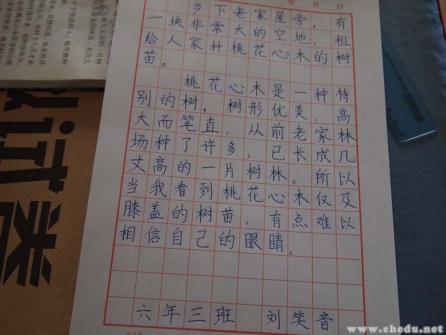 乡下老家屋旁，有
一块非常大的空地，租
给人家种桃花心木的树
苗。
桃花心木是一种特
别的树，树形优美，高
大而笔直，从前老家林
场种了许多，已长成几
丈高的一片树林。所以
当我看到桃花心木仅及
膝盖的树苗，有点难以
相信自己的眼睛。
六年三班 刘笑音
试卷
www.chedu.net